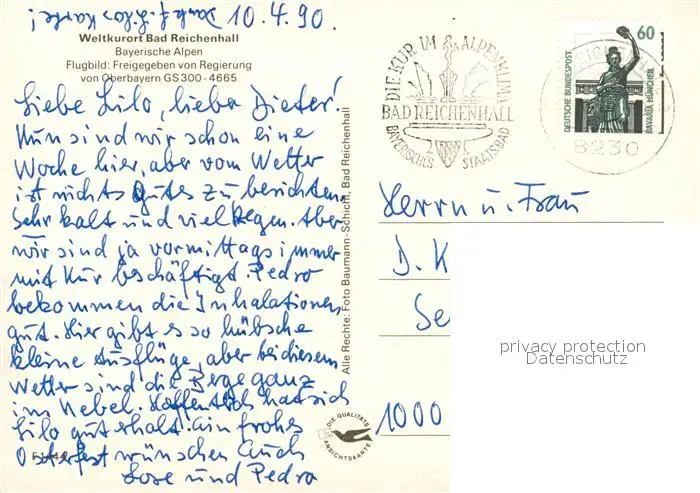 Dank f. Lilos Karte! 10.4.90.
Weltkurort Bad Reichenhall
Bayerische Alpen
Flugbild: Freigegeben von Regierung
von Oberbayern GS 300 - 4665
Liebe Lilo, lieber Dieter!
Nun sind wir schon eine
Woche hier, aber vom Wetter
ist nichts Gutes zu berichten.
Sehr kalt und viel Regen. Aber
wir sind ja vormittags immer
mit Kur beschäftigt. Pedro
bekommen die Inhalationen
gut. Hier gibt es so hübsche
kleine Ausflüge, aber bei diesem
Wetter sind die Berge ganz
im Nebel. Hoffentlich hat sich
Lilo gut erholt. Ein frohes
Osterfest wünschen Euch
Lore und Pedro
Alle Rechte: Foto Baumann-Schicht, Bad Reichenhall
DIE QUALITÄTS
ANSICHTSKARTE
DIE KUR IM ALPENKLIMA
BAD REICHENHALL
BAYERISCHES STAATSBAD
8230
60
DEUTSCHE BUNDESPOST
BAVARIA MÜNCHEN
Herrn u. Frau
D. K
Se
1000
privacy protection
Datenschutz